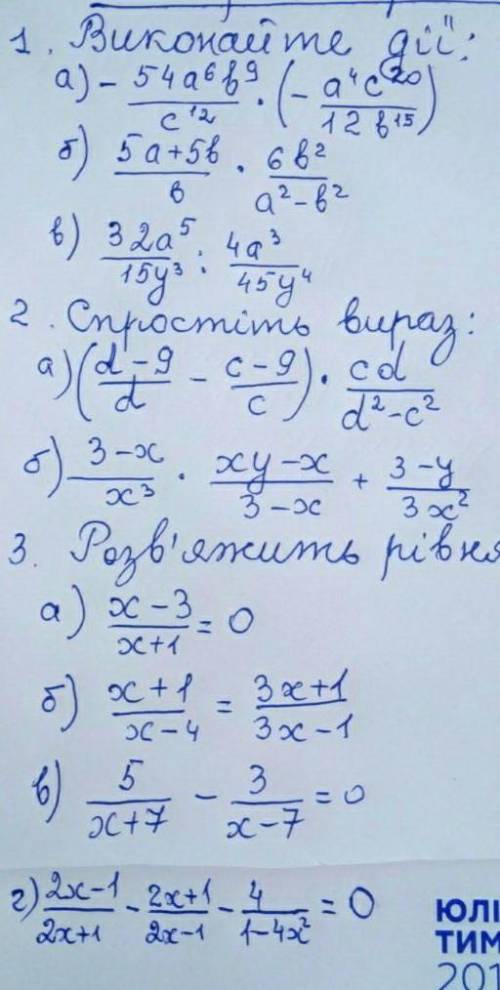 1. Виконайте дії:
а) - 54a⁶b⁹/c¹² · (- a⁴c²⁰/12b¹⁵)
б) 5a+5b/b · 6b²/a²-b²
в) 32a⁵/15y³ : 4a³/45y⁴
2. Спростіть вираз:
а) (d-9/d - c-9/c) · cd/d²-c²
б) 3-x/x³ · xy-x/3-x + 3-y/3x²
3. Розв'яжить рівня
а) x-3/x+1 = 0
б) x+1/x-4 = 3x+1/3x-1
в) 5/x+7 - 3/x-7 = 0
г) 2x-1/2x+1 - 2x+1/2x-1 - 4/1-4x² = 0
ЮЛІ
ТИМ
201